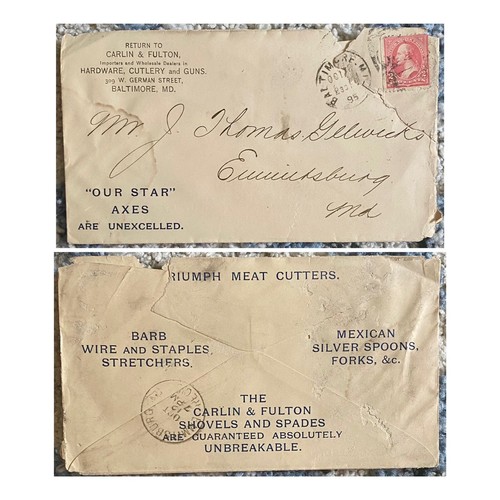 RETURN TO
CARLIN & FULTON,
Importers and Wholesale Dealers in
HARDWARE, CUTLERY and GUNS.
309 W. GERMAN STREET,
BALTIMORE, MD.
BALTIMORE, MD.
OCT
95
Mr. J. Thomas Gelwicks
Emmitsburg
Md
"OUR STAR"
AXES
ARE UNEXCELLED.
RIUMPH MEAT CUTTERS.
BARB
WIRE AND STAPLES,
STRETCHERS.
MEXICAN
SILVER SPOONS,
FORKS, &c.
OCT
7 PM
THE
CARLIN & FULTON
SHOVELS AND SPADES
ARE GUARANTEED ABSOLUTELY
UNBREAKABLE.